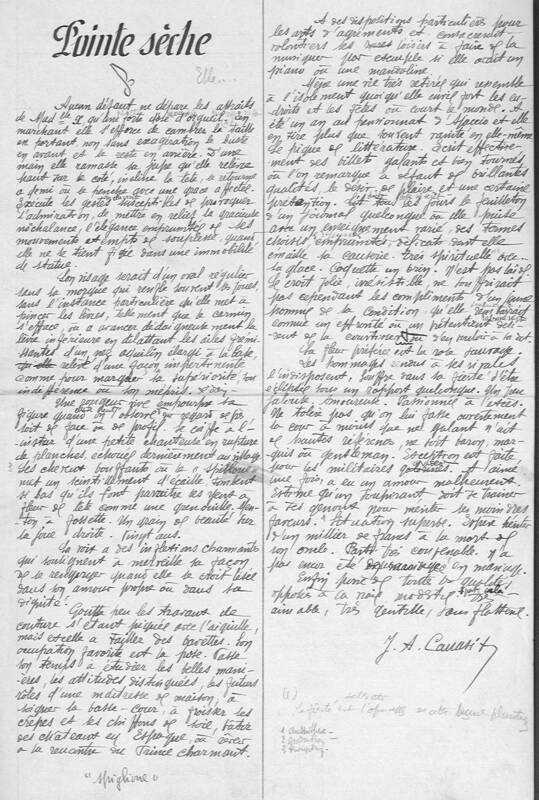 Pointe sèche
Elle...
Aucun défaut ne dépare les attraits
de Mad lle X, qu'une forte dose d'orgueil. En
marchant elle s'efforce de cambrer la taille
en portant, non sans exagération le buste
en avant et le reste en arrière. D'une
main elle ramasse sa jupe qu'elle relève
haut sur le côté, incline la tête, la retourne
à demi ou la penche avec une grâce affectée.
Exécute les gestes susceptibles de provoquer
l'admiration, de mettre en relief sa gracieuse
nonchalance, l'élégance empruntée de ses
mouvements et emplis de souplesse, quand
elle ne se tient figée dans une immobilité
de statue.
Son visage serait d'un oval régulier
sans la moue qui renfle souvent les joues,
sans l'instance particulière qu'elle met à
pincer les lèvres, tellement que le carmin
s'efface, ou à avancer dédaigneusement la
lèvre inférieure en dilatant les ailes
d'un nez aquilin élargi à la base,
relevé d'une façon impertinente
comme pour marquer sa supériorité, son
indifférence ou son mépris.
Une rougeur
figure quand on l'observe du regard de
de face ou de profil. Se coiffe à l'
instar d'une petite chanteuse en rupture
de planches, échouée dernièrement au village.
Ses cheveux bouffants où la "spillone"
met un scintillement d'écaille, tombent
si bas qu'ils font paraître les yeux à
fleur de tête comme une grenouille. Men-
ton à fossette. Un grain de beauté sur
la joue droite. Vingt ans.
Sa voix a des inflexions charmantes
qui soulignent à merveille sa façon
de se rengorger quand elle se croit lésée
dans son amour propre ou dans sa
dignité.
Goutte peu les travaux de
couture s'étant piquée avec l'aiguille,
mais excelle à tailler des bavettes. Son
occupation favorite est la pose. Passe
son temps à étudier les belles maniè-
res, les attitudes distinguées, les futurs
rôles d'une maîtresse de maison, à
soigner la basse-cour, à froisser les
crêpes et les chiffons de soie, bâtir
des châteaux en Espagne, ou rêver
à la rencontre du Prince charmant.
"spiglione"
A des dispositions particulières pour
les arts d'agréments et consacrerait
volontiers ses rares loisirs à faire de la
musique par exemple si elle avait un
piano ou une mandoline.
Mène une vie très retirée qui ressemble
à l'isolement quoiqu'elle aime fort les en-
droits et les fêtes où court le monde. A
été un an au pensionnat d'Ajaccio et elle
en tire plus que souvent vanité en elle-même.
Se pique de littérature. Écrit effective-
ment des billets galants et bien tournés
où l'on remarque à défaut de brillantes
qualités, le désir de plaire et une certaine
prétention. Lit tous les jours le feuilleton
d'un journal quelconque où elle puise
avec un enseignement varié, des termes
choisis, empruntés, délicats dont elle
émaille sa causerie. Très spirituelle avec
sa glace. Coquette un brin. N'est pas laide.
Se croit jolie, irrésistible, ne souffrirait
pas cependant les compliments d'un jeune
homme de sa condition, qu'elle
comme un effronté ou un prétentieux
de la courtiser
Sa fleur préférée est la rose sauvage.
Les hommages rendus à ses rivales
l'indisposent. Souffre dans sa fierté d'être
éclipsée sous un rapport quelconque. Un peu
jalouse, amoureuse, passionnée à l'excès.
Ne tolère pas qu'on lui fasse ouvertement
la cour à moins que ce galant n'ait
de hautes références, ne soit baron, mar-
quis ou gentleman. Exception est faite
pour les militaires gradés. A aimé
une fois, a eu un amour malheureux.
Estime qu'un soupirant doit se traîner
à ses genoux pour mériter les moindres
faveurs. Situation superbe. Future héritière
d'un millier de francs à la mort de
son oncle. Parti très convenable. N'a
pas encore été demandée en mariage.
Enfin, parée de toutes les qualités
opposées à la vraie modestie. Très
aimable, très gentille, sans flatterie.
J. A. Canasi
(1)
1
2
3